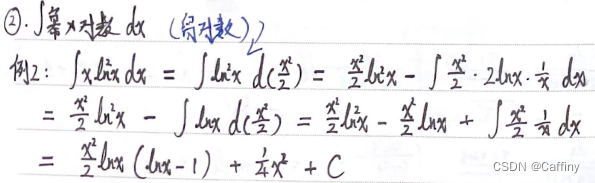 ②. ∫幂×对数 dx (留对数)
例2: ∫x ln²x dx = ∫ln²x d(x²/2) = x²/2 ln²x - ∫x²/2 · 2lnx · 1/x dx
= x²/2 ln²x - ∫lnx d(x²/2) = x²/2 ln²x - x²/2 lnx + ∫x²/2 1/x dx
= x²/2 lnx (lnx-1) + 1/4 x² + C
CSDN @Caffiny